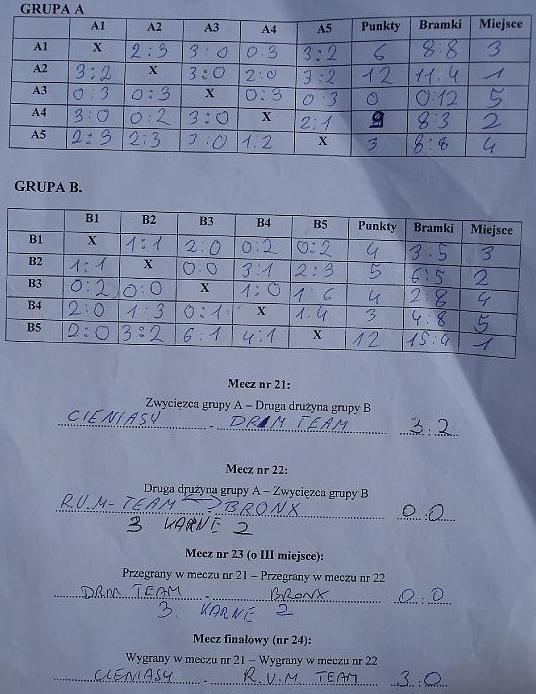 GRUPA A
A1 A2 A3 A4 A5 Punkty Bramki Miejsce
A1 X 2:3 3:0 0:3 3:2 6 8:8 3
A2 3:2 X 3:0 2:0 3:2 12 11:4 1
A3 0:3 0:3 X 0:3 0:3 0 0:12 5
A4 3:0 0:2 3:0 X 2:1 9 8:3 2
A5 2:3 2:3 3:0 1:2 X 3 8:8 4
GRUPA B.
B1 B2 B3 B4 B5 Punkty Bramki Miejsce
B1 X 1:1 2:0 0:2 0:2 4 3:5 3
B2 1:1 X 0:0 3:1 2:3 5 6:5 2
B3 0:2 0:0 X 1:0 1:6 4 2:8 4
B4 2:0 1:3 0:1 X 1:4 3 4:8 5
B5 2:0 3:2 6:1 4:1 X 12 15:4 1
Mecz nr 21:
Zwycięzca grupy A – Druga drużyna grupy B
CIENIASY - DRM TEAM 3:2
Mecz nr 22:
Druga drużyna grupy A – Zwycięzca grupy B
R.U.M-TEAM - BRONX 0:0
3 KARNE 2
Mecz nr 23 (o III miejsce):
Przegrany w meczu nr 21 – Przegrany w meczu nr 22
DRM TEAM - BRONX 0:0
3. KARNE 2
Mecz finałowy (nr 24):
Wygrany w meczu nr 21 – Wygrany w meczu nr 22
CIENIASY - R.U.M TEAM 3:0